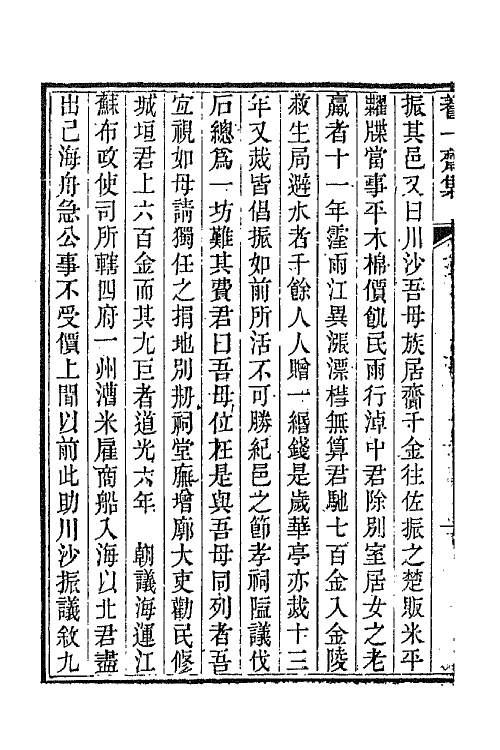 養一齋集
振其邑又曰川沙吾母族居齎千金往佐振之楚販米平
糶牒當事平木棉價飢民雨行淖中君除別室居女之老
羸者十一年霪雨江異漲漂櫘無算君馳七百金入金陵
救生局避水者千餘人人贈一緡錢是歲華亭亦烖十三
年又烖皆倡振如前所活不可勝紀邑之節孝祠隘議伐
石總爲一坊難其費君曰吾母位在是與吾母同列者吾
宜視如母請獨任之捐地別剏祠堂廡增廓大吏勸民修
城垣君上六百金而其九巨者道光六年 朝議海運江
蘇布政使司所轄四府一州漕米雇商船入海以北君盡
出己海舟急公事不受價上聞以前此助川沙振議敘九